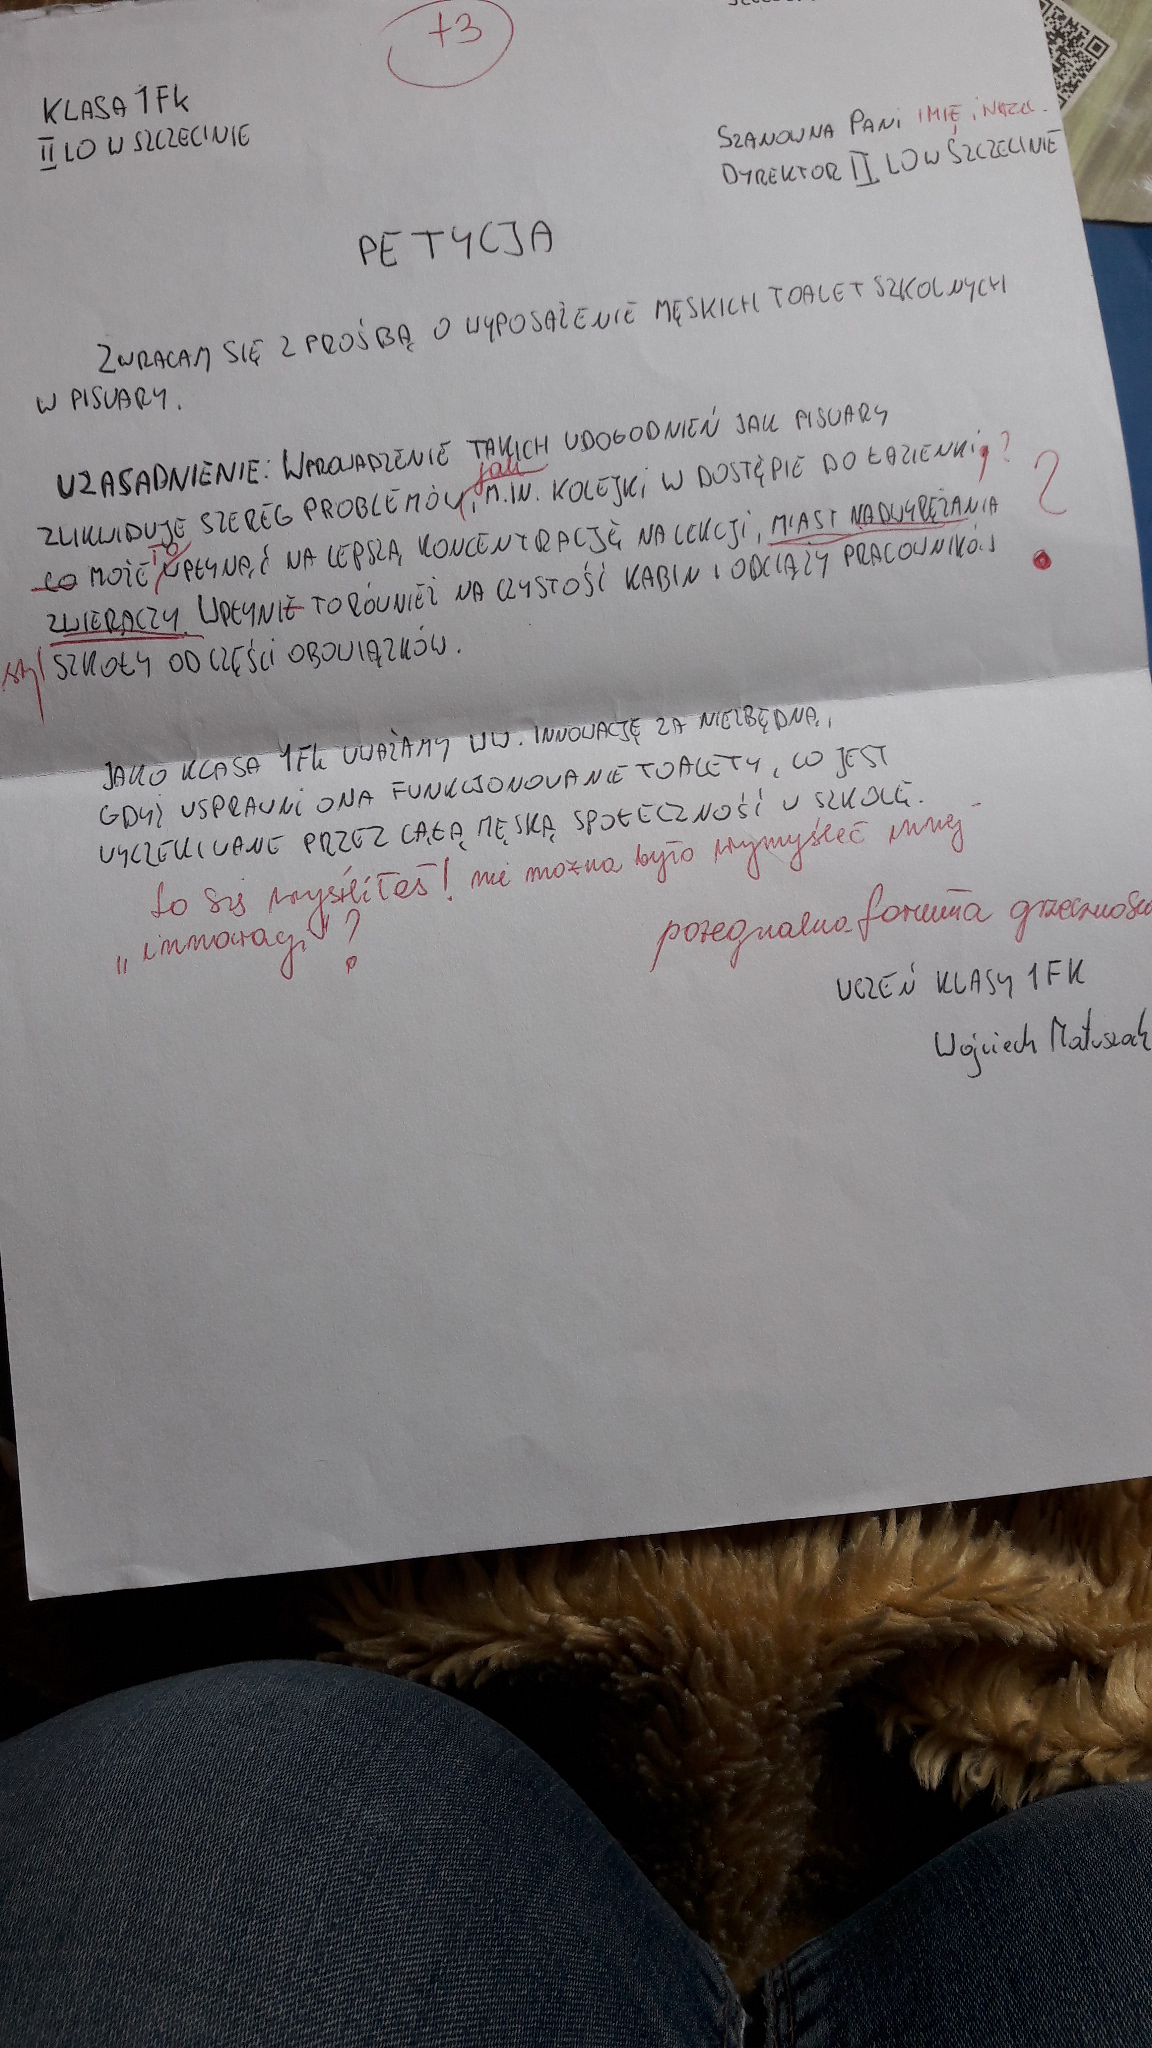 +3
KLASA 1FK
II LO W SZCZECINIE
SZANOWNA PANI IMIĘ i NAZW.
DYREKTOR II LO W SZCZECINIE
PETYCJA
ZWRACAM SIĘ Z PROŚBĄ O WYPOSAŻENIE MĘSKICH TOALET SZKOLNYCH
W PISUARY.
UZASADNIENIE: WPROWADZENIE TAKICH UDOGODNIEŃ JAK PISUARY
jak
ZLIKWIDUJE SZEREG PROBLEMÓW, M.IN. KOLEJKI W DOSTĘPIE DO ŁAZIENKI, ?
TO
CO MOŻE WPŁYNĄĆ NA LEPSZĄ KONCENTRACJĘ NA LEKCJI, MIAST NADWYRĘŻANIA ?
ZWIERACZY. WPŁYNIE TO RÓWNIEŻ NA CZYSTOŚĆ KABIN I ODCIĄŻY PRACOWNIKÓW
styl SZKOŁY OD CZĘŚCI OBOWIĄZKÓW.
JAKO KLASA 1FK UWAŻAMY WW. INNOWACJĘ ZA NIEZBĘDNĄ,
GDYŻ USPRAWNI ONA FUNKCJONOWANIE TOALETY, CO JEST
WYCZEKIWANE PRZEZ CAŁĄ MĘSKĄ SPOŁECZNOŚĆ W SZKOLE.
to się wysiliłeś! nie można było wymyśleć innej
„innowacji"?
pożegnalna formuła grzecznoś
UCZEŃ KLASY 1FK
Wojciech Matuszak